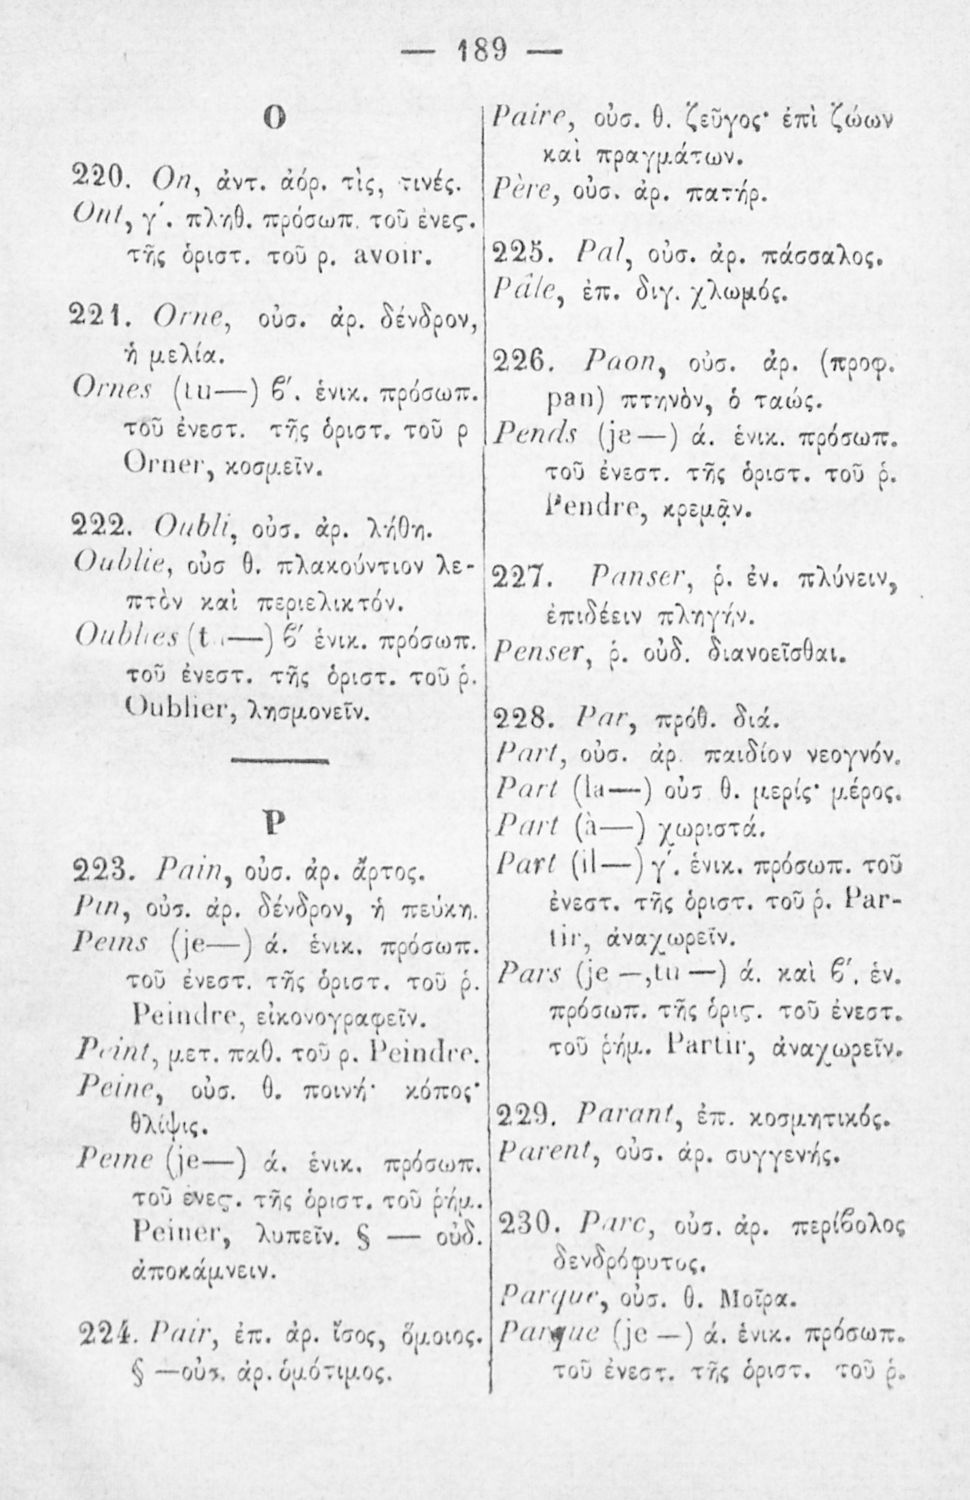 — 189 —
O
220. On, ἀντ. ἀόρ. τὶς, τινές.
Ont, γ΄. πληθ. πρόσωπ. τοῦ ἐνεϛ.
τῆς ὁριστ. τοῦ ρ. avoir.
221. Orne, οὐσ. ἀρ. δένδρον,
ἡ μελία.
Ornes (tu—) ϐ΄. ἑνικ. πρόσωπ.
τοῦ ἐνεστ. τῆς ὁριστ. τοῦ ρ
Orner, κοσμεῖν.
222. Oubli, οὐσ. ἀρ. λήθη.
Oublie, οὐσ θ. πλακούντιον λε-
πτὸν καὶ περιελικτόν.
Oublies (t—) ϐ΄ ἑνικ. πρόσωπ.
τοῦ ἐνεστ. τῆς ὁριστ. τοῦ ῥ.
Oublier, λησμονεῖν.
P
223. Pain, οὐσ. ἀρ. ἄρτος.
Pin, οὐσ. ἀρ. δένδρον, ἡ πεύκη.
Peins (je—) ά. ἑνικ. πρόσωπ.
τοῦ ἐνεστ. τῆς ὁριστ. τοῦ ῥ.
Peindre, εἰκονογραφεῖν.
Peint, μετ. παθ. τοῦ ρ. Peindre.
Peine, οὐσ. θ. ποινή· κόπος·
θλίψις.
Peine (je—) ά. ἑνικ. πρόσωπ.
τοῦ ἐνεϛ. τῆς ὁριστ. τοῦ ῥήμ.
Peiner, λυπεῖν. § — οὐδ.
ἀποκάμνειν.
224. Pair, ἐπ. ἀρ. ἴσος, ὅμοιος.
§ —οὐσ. ἀρ. ὁμότιμος.
Paire, οὐσ. θ. ζεῦγος· ἐπὶ ζώων
καὶ πραγμάτων.
Père, οὐσ. ἀρ. πατήρ.
225. Pal, οὐσ. ἀρ. πάσσαλος.
Pâle, ἐπ. διγ. χλωμός.
226. Paon, οὐσ. ἀρ. (προφ.
pan) πτηνὸν, ὁ ταώς.
Pends (je—) ά. ἑνικ. πρόσωπ.
τοῦ ἐνεστ. τῆς ὁριστ. τοῦ ῥ.
Pendre, κρεμᾷν.
227. Panser, ῥ. ἐν. πλύνειν,
ἐπιδέειν πληγήν.
Penser, ῥ. οὐδ. διανοεῖσθαι.
228. Par, πρόθ. διά.
Part, οὐσ. ἀρ. παιδίον νεογνόν.
Part (la—) οὐσ θ. μερίς· μέρος.
Part (à—) χωριστά.
Part (il—) γ΄. ἑνικ. πρόσωπ. τοῦ
ἐνεστ. τῆς ὁριστ. τοῦ ῥ. Par-
tir, ἀναχωρεῖν.
Pars (je —, tu —) ά. καὶ ϐ΄. ἑν.
πρόσωπ. τῆς ὁριϛ. τοῦ ἐνεστ.
τοῦ ῥήμ. Partir, ἀναχωρεῖν.
229. Parant, ἐπ. κοσμητικός.
Parent, οὐσ. ἀρ. συγγενής.
230. Parc, οὐσ. ἀρ. περίϐολος
δενδρόφυτος.
Parque, οὐσ. θ. Μοῖρα.
Parque (je —) ά. ἑνικ. πρόσωπ.
τοῦ ἐνεστ. τῆς ὁριστ. τοῦ ῥ.